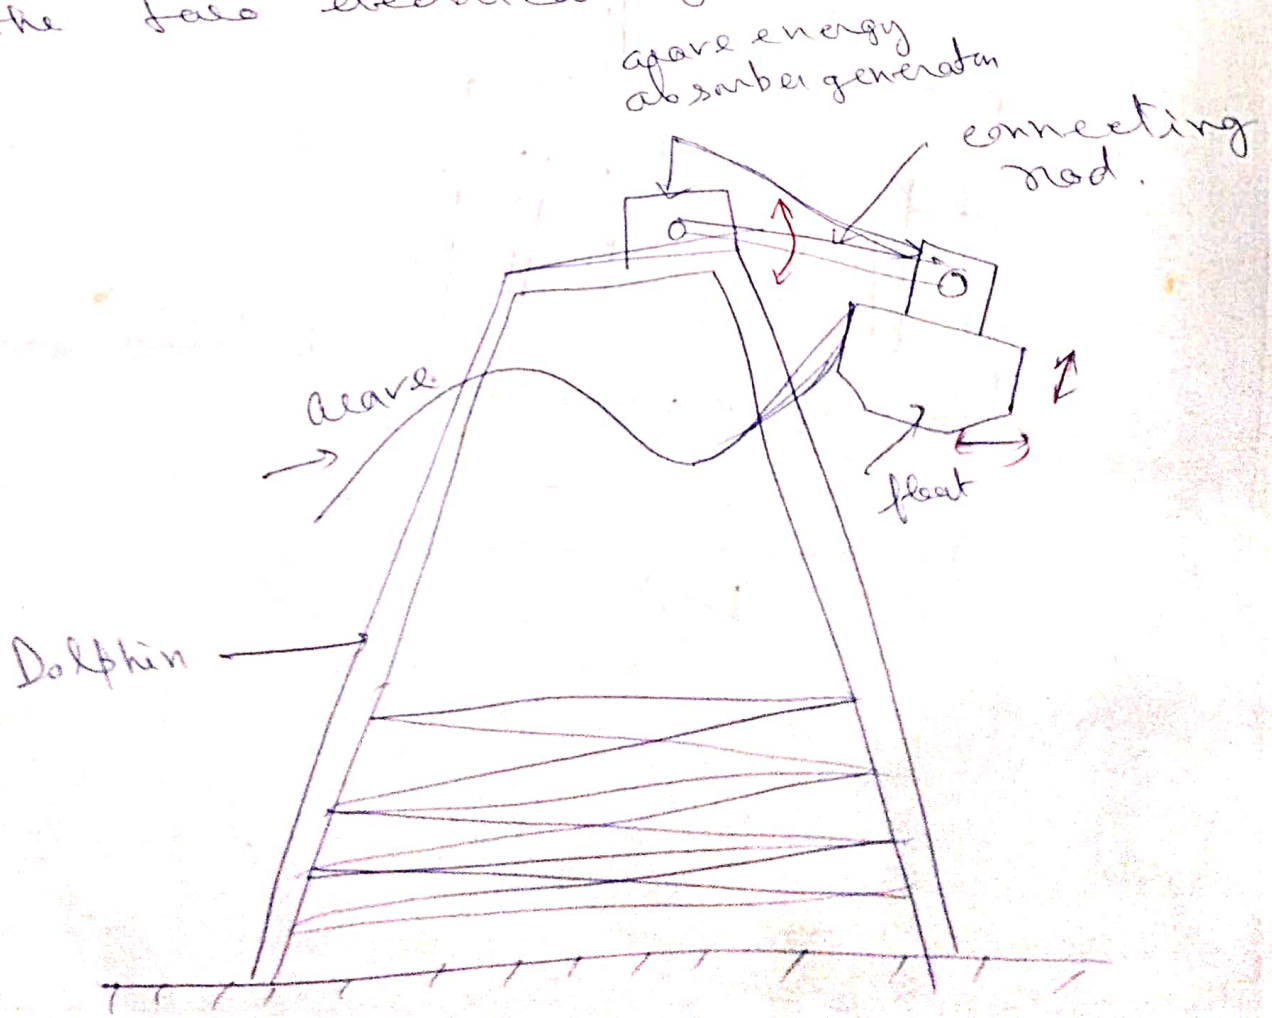 the
wave energy
absorber generator
connecting
rod.
wave
float
Dolphin